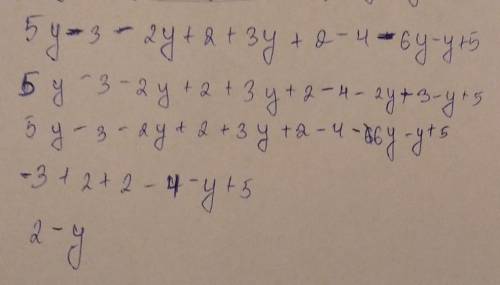 5y-3-2y+2+3y+2-4-6y-y+5
5y-3-2y+2+3y+2-4-2y+3-y+5
5y-3-2y+2+3y+2-4-6y-y+5
-3+2+2-4-y+5
2-y